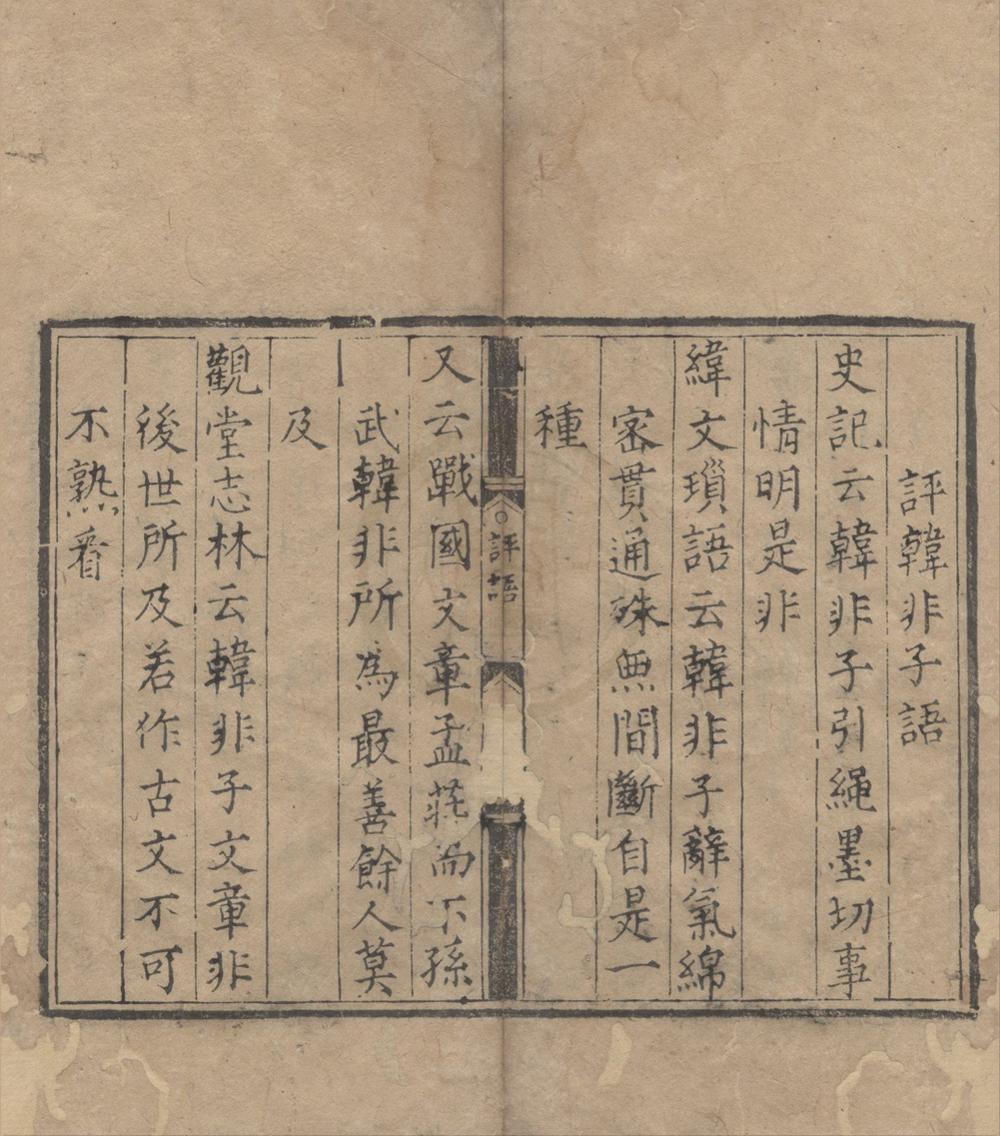 評韓非子語
史記云韓非子引繩墨切事
情明是非
緯文瑣語云韓非子辭氣綿
宻貫通殊無間斷自是一
種
評語
又云戰國文章孟莊而下孫
武韓非所為最善餘人莫
及
觀堂志林云韓非子文章非
後世所及若作古文不可
不熟看